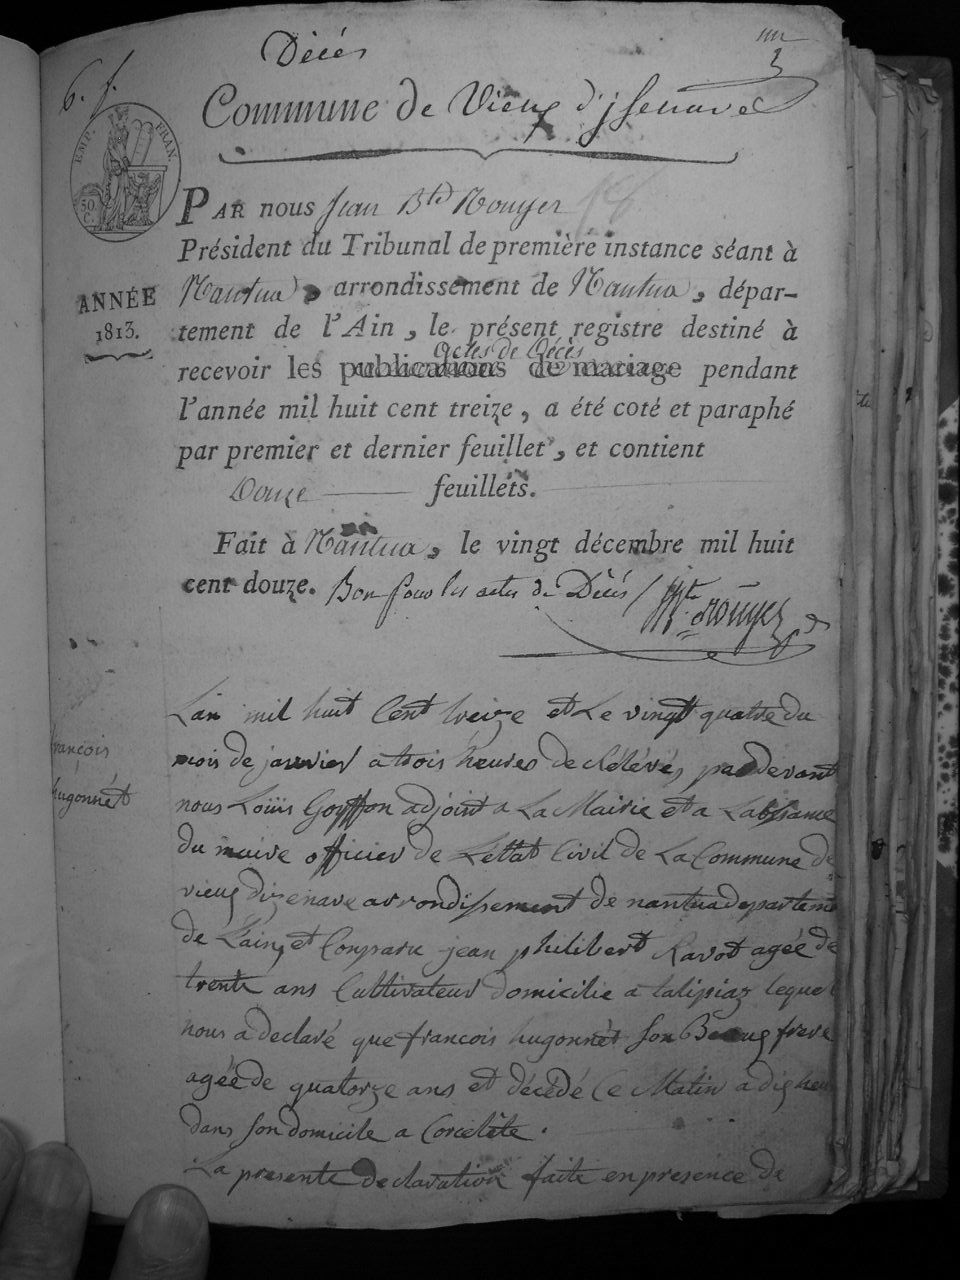 6. f.
Décés
Commune de Vieux d'jsenave
EMP. FRAN.
50. C.
PAR nous Jean Bte Rouyer
Président du Tribunal de première instance séant à
Nantua, arrondissement de Nantua, dépar-
ANNÉE
1813.
tement de l'Ain, le présent registre destiné à
actes de Décès
recevoir les publications de mariage pendant
l'année mil huit cent treize, a été coté et paraphé
par premier et dernier feuillet, et contient
Douze feuillets.
Fait à Nantua, le vingt décembre mil huit
cent douze. Bon pour les actes de Décés /
Bte Rouyer
françois
hugonnét
Lan mil huit Cent treize et Le vingt quatre du
mois de janvier a trois heures de Rélévés pardevant
nous Loüis Goyffon adjoint a La Mairie et a Labsance
du maire officier de L'éttat Civil de La Commune de
vieux dizenave arrondissement de nantua departemt
de Lain, et Comparu jean philibert Ravot agée de
trente ans Cultivateur domicilie a talipiaz lequel
nous a declaré que françois hugonnét son Beaux frere
agée de quatorze ans et décédé Ce Matin a dix heu
dans son domicile a Corcelête.
La presente declaration faite en presence de